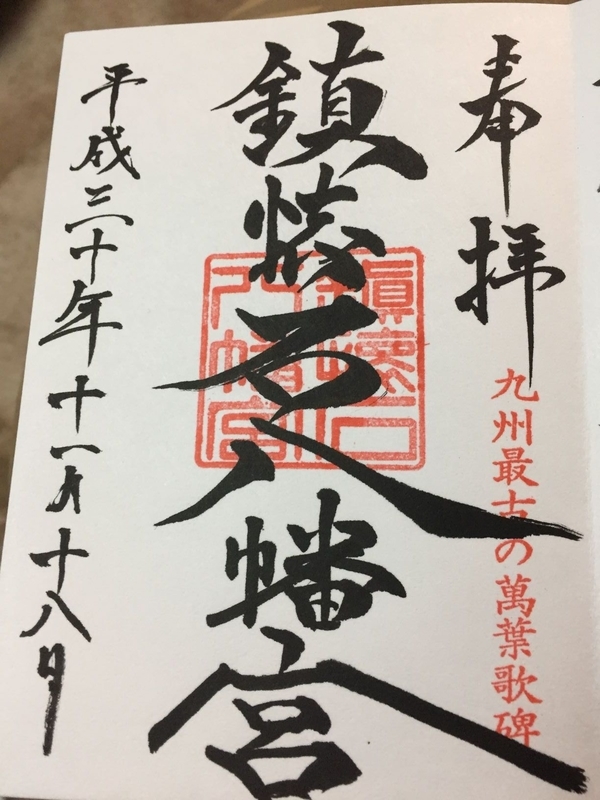 奉拝
九州最古の萬葉歌碑
鎮懐石八幡宮
鎭懷石
八幡宮
平成三十年十一月十八日